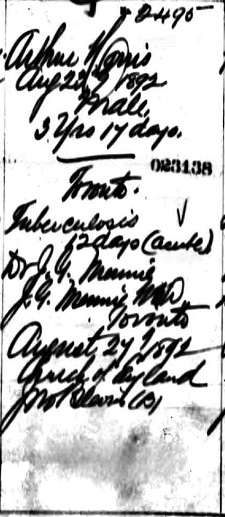 2495
Arthur Norris
Aug 22nd, 1892
Male,
3 Yrs 17 days.
023138
Toronto.
Tuberculosis
12 days (acute)
Dr J. G. Mennie
J. G. Mennie M.D.
Toronto
August, 27, 1892
Church of England
(B)